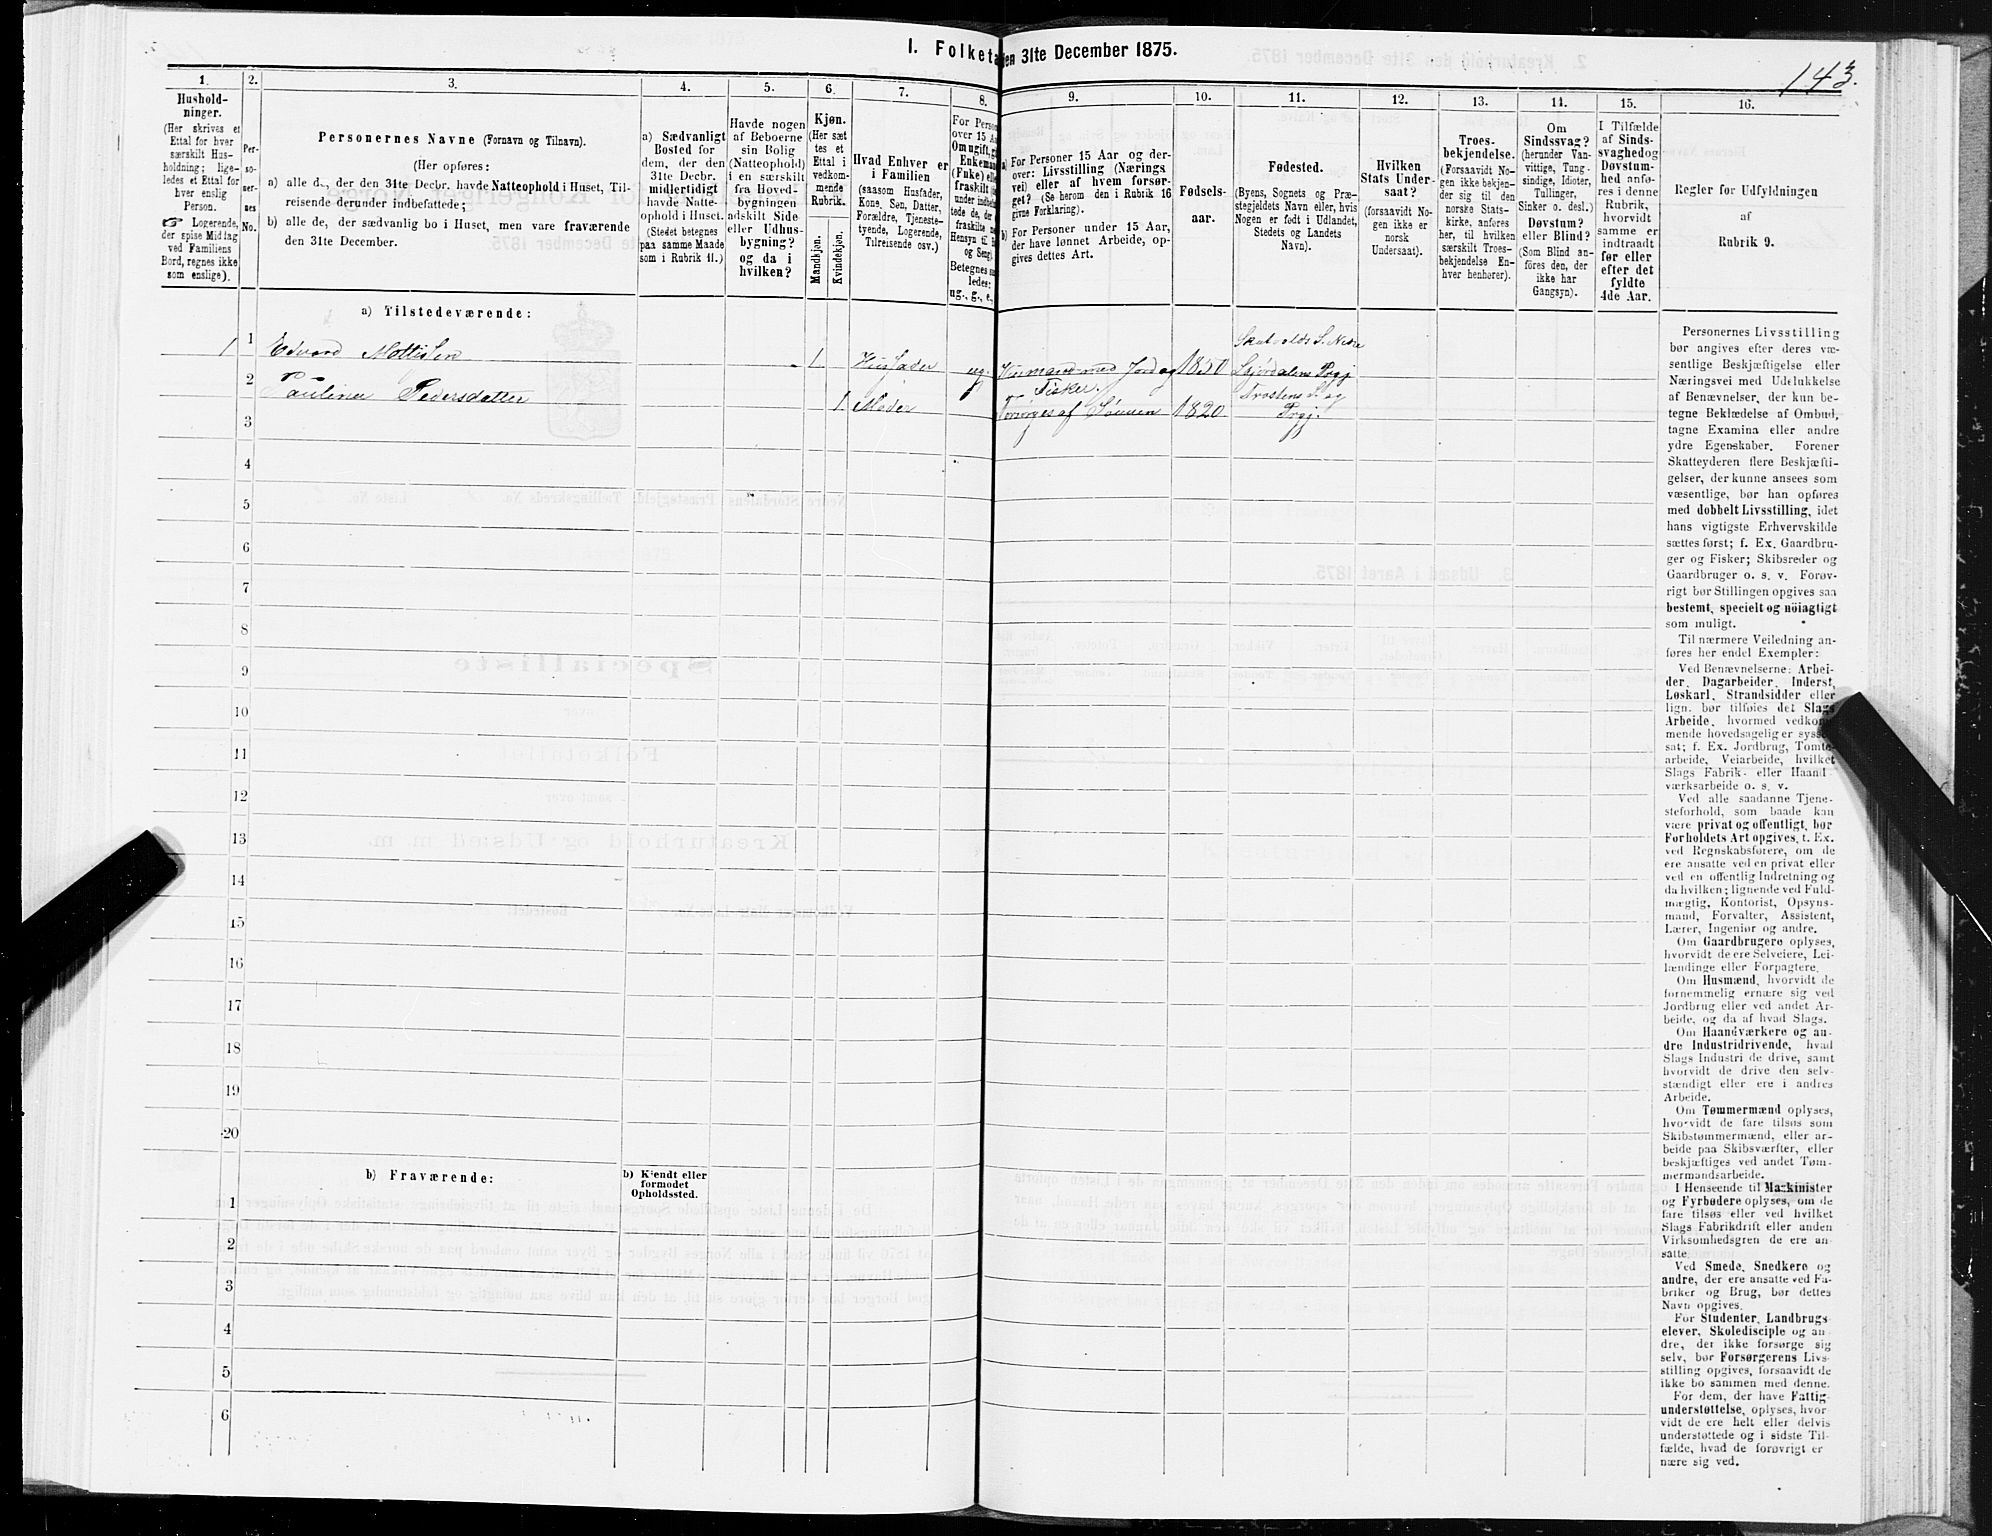 I. Folketa
den 31te December 1875.
143.
1.
2.
3.
4.
5.
6.
7.
8.
9.
10.
11.
12.
13.
14.
15.
16.
Hushold-
ninger.
(Her skrives et
Ettal for hver
særskilt Hus-
holdning; lige-
ledes et Ettal for
hver enslig
Person.
☞ Logerende,
der spise Middag
ved Familiens
Bord, regnes ikke
som enslige).
Per-
so-
ner-
nes
No.
Personernes Navne (Fornavn og Tilnavn).
(Her opføres:
a) alle de, der den 31te Decbr. havde Natteophold i Huset, Til-
reisende derunder indbefattede;
b) alle de, der sædvanlig bo i Huset, men vare fraværende
den 31te December.
a) Sædvanligt
Bosted for
dem, der den
31te Decbr.
midlertidigt
havde Natte-
ophold i Huset.
(Stedet betegnes
paa samme Maade
som i Rubrik 11.)
Havde nogen
af Beboerne
sin Bolig
(Natteophold)
i en særskilt
fra Hoved-
bygningen
adskilt Side-
eller Udhus-
bygning?
og da i
hvilken?
Kjøn.
(Her sæt
tes et
Ettal i
vedkom-
mende
Rubrik.
Mandkjøn.
Kvindekjøn.
Hvad Enhver er
i Familien
(saasom Husfader,
Kone, Søn, Datter,
Forældre, Tjeneste-
tyende, Logerende,
Tilreisende osv.)
For Perso
over 15 Aa
Om ugift, gi
Enkeman
(Enke) elle
fraskilt
under indbe
tede de, der
fraskilte
Hensyn til
og Seng).
Betegnes saa
ledes:
ug., g., e.,
a) For Personer 15 Aar og der-
over: Livsstilling (Nærings
vei) eller af hvem forsør-
get? (Se herom den i Rubrik 16
givne Forklaring).
b) For Personer under 15 Aar,
der have lønnet Arbeide, op-
gives dettes Art.
Fødsels-
aar.
Fødested.
(Byens, Sognets og Præ-
stegjeldets Navn eller, hvis
Nogen er født i Udlandet,
Stedets og Landets
Navn).
Hvilken
Stats Under-
saat?
(forsaavidt No-
gen ikke er
norsk
Undersaat).
Troes-
bekjendelse.
(Forsaavidt No-
gen ikke bekjen-
der sig til den
norske Stats-
kirke, anføres
her, til hvilken
særskilt Troes-
bekjendelse En-
hver henhører).
Om
Sindssvag?
(herunder Van-
vittige, Tung-
sindige, Idioter,
Tullinger,
Sinker o. desl.)
Døvstum?
eller Blind?
(Som Blind an-
føres den, der
ikke har
Gangsyn).
I Tilfælde
af Sinds-
svaghed og
Døvstum-
hed anfø-
res i denne
Rubrik,
hvorvidt
samme er
indtraadt
før eller
efter det
fyldte
4de Aar.
Regler for Udfyldningen
af
Rubrik 9.
a) Tilstedeværende:
1 1 Edvard Mottisen 1 Husfader ug. Husmand med Jord og Fisker. 1850 Skatvolds S. Nedre Stjørdalens Prgj
2 Pauline Pedersdatter 1 Moder Forsørges af Sønnen 1820 Frostens S. og Prgj.
3
4
5
6
7
8
9
10
11
12
13
14
15
16
17
18
19
20
b) Fraværende:
b) Kjendt eller
formodet
Opholdssted.
1
2
3
4
5
6
Personernes Livsstilling
bør angives efter deres væ-
sentlige Beskjæftigelse eller
Næringsvei med Udelukkelse
af Benævnelser, der kun be-
tegne Beklædelse af Ombud,
tagne Examina eller andre
ydre Egenskaber. Forener
Skatteyderen flere Beskjæfti-
gelser, der kunne ansees som
væsentlige, bør han opføres
med dobbelt Livsstilling, idet
hans vigtigste Erhvervskilde
sættes først; f. Ex. Gaardbru-
ger og Fisker; Skibsreder og
Gaardbruger o. s. v. Forøv-
rigt bør Stillingen opgives saa
bestemt, specielt og nöiagtigt
som muligt.
Til nærmere Veiledning an-
føres her endel Exempler:
Ved Benævnelserne: Arbei-
der, Dagarbeider, Inderst,
Løskarl, Strandsidder eller
lign. bør tilføies det Slags
Arbeide, hvormed vedkom-
mende hovedsagelig er syssel-
sat; f. Ex. Jordbrug, Tomte-
arbeide, Veiarbeide, hvilket
Slags Fabrik- eller Haand-
værksarbeide o. s. v.
Ved alle saadanne Tjene-
steforhold, som baade kan
være privat og offentligt, bør
Forholdets Art opgives, t. Ex.
ved Regnskabsførere, om de
ere ansatte ved en privat eller
ved en offentlig Indretning og
da hvilken; lignende ved Fuld-
mægtig, Kontorist, Opsyns-
mand, Forvalter, Assistent,
Lærer, Ingeniør og andre.
Om Gaardbrugere oplyses,
hvorvidt de ere Selveiere, Lei-
lændinge eller Forpagtere.
Om Husmænd, hvorvidt de
fornemmelig ernære sig ved
Jordbrug eller ved andet Ar-
beide, og da af hvad Slags.
Om Haandværkere og an-
dre Industridrivende, hvad
Slags Industri de drive, samt
hvorvidt de drive den selv-
stændigt eller ere i andres
Arbeide.
Om Tømmermænd oplyses,
hvorvidt de fare tilsøs som
Skibstømmermænd, eller ar-
beide paa Skibsværfter, eller
beskjæftiges ved andet Tøm-
mermandsarbeide.
I Henseende til Maskinister
og Fyrbødere oplyses, om de
fare tilsøs eller ved hvilket
Slags Fabrikdrift eller anden
Virksomhedsgren de ere an-
satte.
Ved Smede, Snedkere og
andre, der ere ansatte ved Fa-
briker og Brug, bør dettes
Navn opgives.
For Studenter, Landbrugs-
elever, Skoledisciple og an-
dre, der ikke forsørge sig
selv, bør Forsørgerens Livs-
stilling opgives, forsaavidt de
ikke bo sammen med denne.
For dem, der have Fattig-
understøttelse, oplyses, hvor-
vidt de ere helt eller delvis
understøttede og i sidste Til-
fælde, hvad de forøvrigt er
nære sig ved.